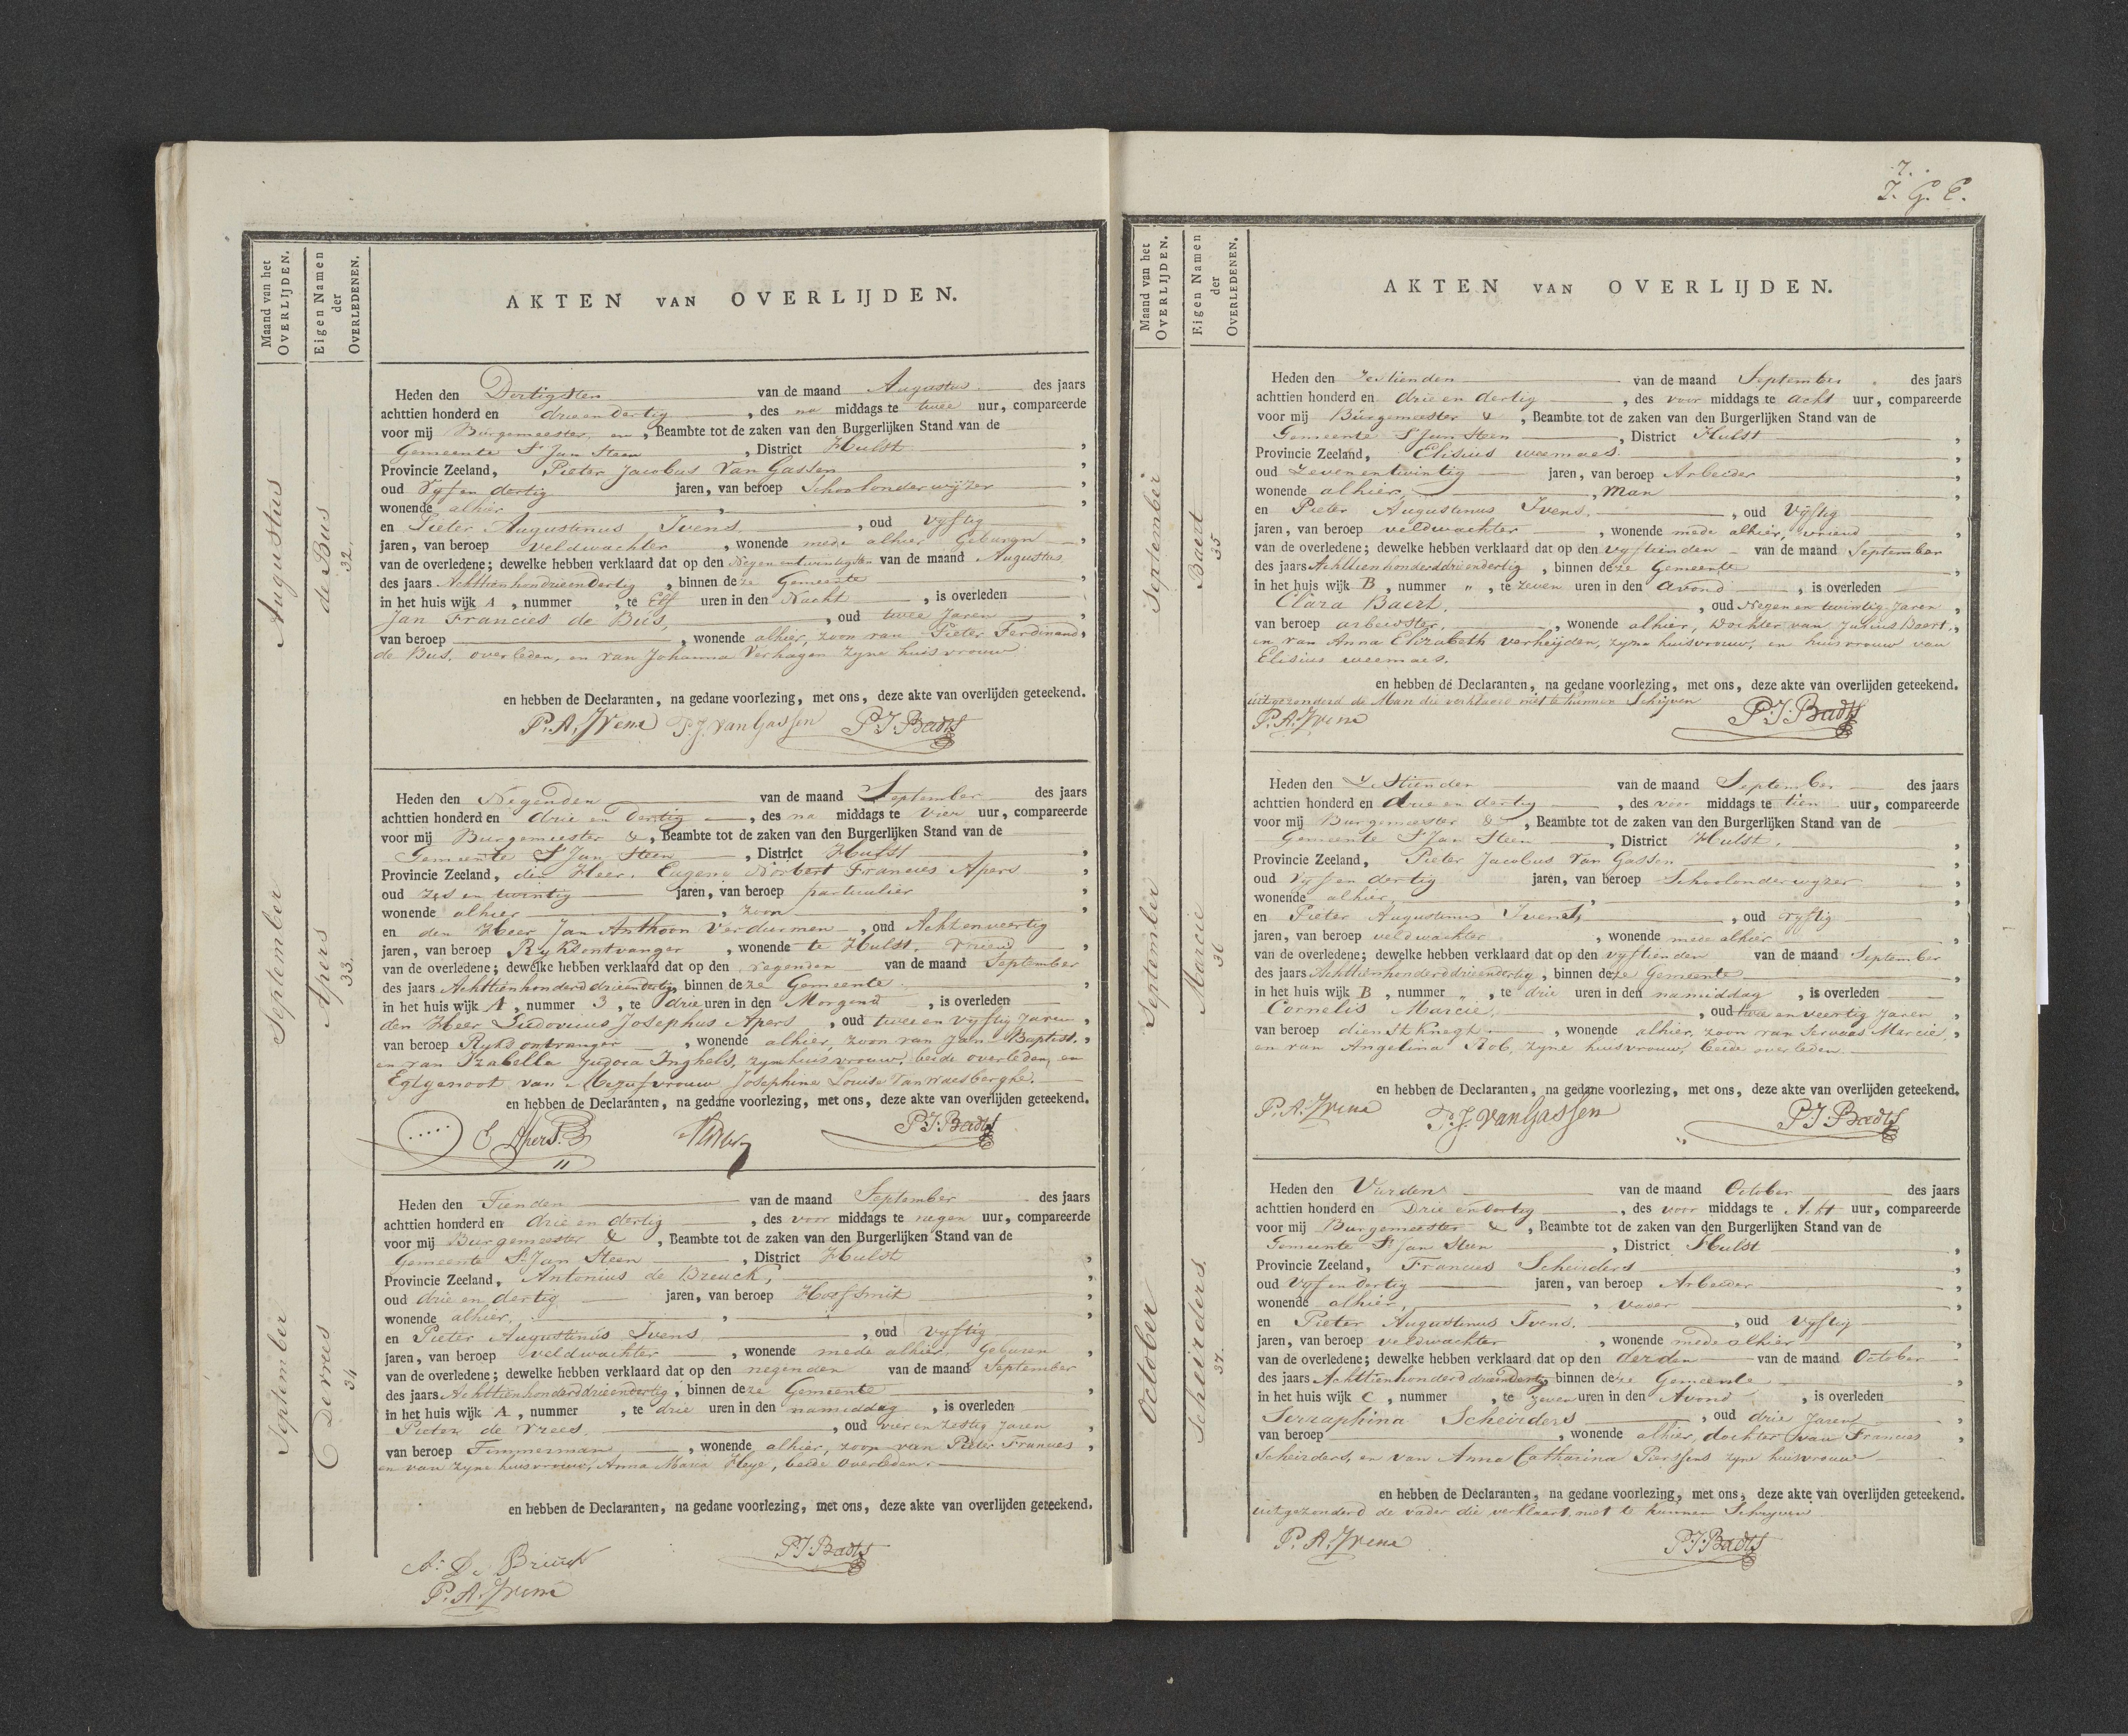 Maand van het
OVERLIJDEN.
Eigen Namen
der
OVERLEDENEN.
AKTEN VAN OVERLIJDEN.
Augustus
de Bus
32.
Heden den Dertigsten van de maand Augustus des jaars
achttien honderd en drie en dertig, des na middags te twee uur, compareerde
voor mij Burgemeester en, Beambte tot de zaken van den Burgerlijken Stand van de
Gemeente St Jan Steen, District Hulst,
Provincie Zeeland, Pieter Jacobus Van Gassen,
oud Vyf en dertig jaren, van beroep Schoolonderwyzer,
wonende alhier,
en Pieter Augustinus Ivens, oud vyftig
jaren, van beroep veldwachter, wonende mede alhier Geburen,
van de overledene; dewelke hebben verklaard dat op den Negenentwintigsten van de maand Augustus
des jaars Achttienhondrieendertig, binnen deze Gemeente,
in het huis wijk A, nummer , te Elf uren in den Nacht, is overleden
Jan Francies de Bus, oud twee Jaren,
van beroep , wonende alhier, zoon van Pieter Ferdinand,
de Bus, overleden, en van Johanna Verhagen zyne huisvrouw.
en hebben de Declaranten, na gedane voorlezing, met ons, deze akte van overlijden geteekend.
P. A. Ivens P. J. Van Gassen P. J. Badts
September
Apers
33.
Heden den Negenden van de maand September des jaars
achttien honderd en drie en dertig, des na middags te vier uur, compareerde
voor mij Burgemeester &, Beambte tot de zaken van den Burgerlijken Stand van de
Gemeente St Jan Steen, District Hulst,
Provincie Zeeland, den Heer. Eugene Norbert Francies Apers,
oud zes en twintig jaren, van beroep particulier,
wonende alhier, zoon,
en den Heer Jan Anthoon Verdurmen, oud Achtenveertig
jaren, van beroep Ryksontvanger, wonende te Hulst. vriend,
van de overledene; dewelke hebben verklaard dat op den negenden van de maand September
des jaars Achttienhonderd drieendertig, binnen deze Gemeente,
in het huis wijk A, nummer 3, te drie uren in den Morgend, is overleden
den Heer Ludovicus Josephus Apers, oud twee en vyftig Jaren,
van beroep Ryksontvanger, wonende alhier, zoon van Jean Baptist,
en van Izabella Judora Inghels, zyn huisvrouw, beide overleden, en
Egtgenoot van Mejufvrouw Josephine Louise Van Waesberghe.
en hebben de Declaranten, na gedane voorlezing, met ons, deze akte van overlijden geteekend.
E Apers P. J. Badts
September
De vrees
34
Heden den Tienden van de maand September des jaars
achttien honderd en drie en dertig, des voor middags te negen uur, compareerde
voor mij Burgemeester &, Beambte tot de zaken van den Burgerlijken Stand van de
Gemeente St Jan Steen, District Hulst,
Provincie Zeeland, Antonius de Breuck,
oud drie en dertig jaren, van beroep Hoefsmit,
wonende alhier,
en Pieter Augustinus Ivens, oud vyftig
jaren, van beroep veldwachter, wonende mede alhier, Geburen,
van de overledene; dewelke hebben verklaard dat op den negenden van de maand September
des jaars Achttienhonderddrieendertig, binnen deze Gemeente,
in het huis wijk A, nummer , te drie uren in den namiddag, is overleden
Pieter de Vrees, oud vier en zestig Jaren,
van beroep Timmerman, wonende alhier, zoon van Pieter Francies,
en van zyne huisvrouw, Anna Maria Heye, beide overleden.
en hebben de Declaranten, na gedane voorlezing, met ons, deze akte van overlijden geteekend.
A: De Breuck P. J. Badts
P. A. Ivens
7.
I. G. C.
Maand van het
OVERLIJDEN.
Eigen Namen
der
OVERLEDENEN.
AKTEN VAN OVERLIJDEN.
September
Baert
35
Heden den zestienden van de maand September des jaars
achttien honderd en drie en dertig, des voor middags te acht uur, compareerde
voor mij Burgemeester &, Beambte tot de zaken van den Burgerlijken Stand van de
Gemeente St Jan Steen, District Hulst,
Provincie Zeeland, Elisius weemaes.,
oud zevenentwintig jaren, van beroep Arbeider,
wonende alhier, Man,
en Pieter Augustinus Ivens, oud Vyftig
jaren, van beroep veldwachter, wonende mede alhier, vriend,
van de overledene; dewelke hebben verklaard dat op den vyftienden van de maand September
des jaars Achttienhonderddrieendertig, binnen deze Gemeente,
in het huis wijk B, nummer ", te zeven uren in den avond, is overleden
Clara Baert, oud Negen en twintig Jaren,
van beroep arbeidster, wonende alhier, Dochter van Julius Baert,
en van Anna Elizabeth verheyden, zyne huisvrouw, en huisvrouw van
Elisius weemaes.
en hebben de Declaranten, na gedane voorlezing, met ons, deze akte van overlijden geteekend.
uitgezonderd de Man die verklaard niet te kunnen Schryven
P. A. Ivens P. J. Badts
September
Marcie
36
Heden den Zestienden van de maand September des jaars
achttien honderd en drie en dertig, des voor middags te tien uur, compareerde
voor mij Burgemeester &, Beambte tot de zaken van den Burgerlijken Stand van de
Gemeente St Jan Steen, District Hulst,
Provincie Zeeland, Pieter Jacobus Van Gassen,
oud Vyf en dertig jaren, van beroep Schoolonderwyzer,
wonende alhier,
en Pieter Augustinus Ivens, oud vyftig
jaren, van beroep veldwachter, wonende mede alhier,
van de overledene; dewelke hebben verklaard dat op den vyftienden van de maand September
des jaars Achttienhonderddrieendertig, binnen deze Gemeente,
in het huis wijk B, nummer ", te drie uren in den namiddag, is overleden
Cornelis Marcie, oud twee en veertig Jaren,
van beroep dienstknegt, wonende alhier, zoon van Servaas Marcie,
en van Angelina Rob, zyne huisvrouw, beide overleden.
en hebben de Declaranten, na gedane voorlezing, met ons, deze akte van overlijden geteekend.
P. A. Ivens P. J. Van Gassen P. J. Badts
October
Scheirders.
37.
Heden den Vierden van de maand October des jaars
achttien honderd en Drie en dertig, des voor middags te Acht uur, compareerde
voor mij Burgemeester &, Beambte tot de zaken van den Burgerlijken Stand van de
Gemeente St Jan Steen, District Hulst,
Provincie Zeeland, Francies Scheirders,
oud Vyf en dertig jaren, van beroep Arbeider,
wonende alhier, Vader,
en Pieter Augustinus Ivens, oud Vyftig
jaren, van beroep veldwachter, wonende mede alhier,
van de overledene; dewelke hebben verklaard dat op den derden van de maand October
des jaars Achttienhonderd drieendertig, binnen deze Gemeente,
in het huis wijk C, nummer , te zeven uren in den Avond, is overleden
Serraphina Scheirders, oud drie Jaren,
van beroep , wonende alhier, dochter van Francies,
Scheirders, en van Anna Catharina Pierssens zyne huisvrouw
en hebben de Declaranten, na gedane voorlezing, met ons, deze akte van overlijden geteekend.
uitgezonderd de vader die verklaart niet te kunnen Schryven
P. A. Ivens P. J. Badts